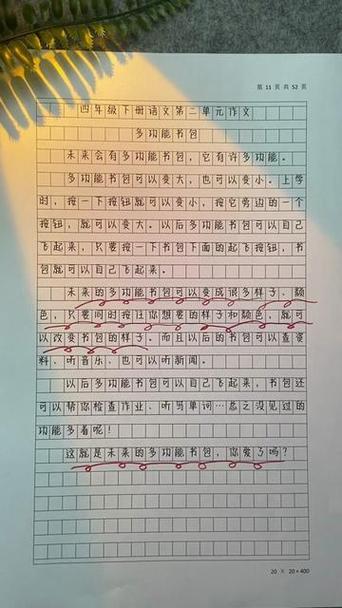 第 11 页 共 52 页
四年级下册语文第二单元作文
多功能书包
未来会有多功能书包，它有许多功能。
多功能书包可以变大，也可以变小。上学
时，按一下按钮就可以变小，按它旁边的一个
按钮，就可以变大。以后多功能书包可以自己
飞起来，只要按一下书包下面的起飞按钮，书
包就可以自己飞起来。
未来的多功能书包可以变成很多样子、颜
色，只要同时按住你想要的样子和颜色，就可
以改变书包的样子。而且以后的书包可以查资
料、听音乐、也可以听新闻。
以后多功能书包可以自己飞起来，书包还
可以帮你检查作业、听写单词…总之没见过的
功能多着呢！
这就是未来的多功能书包，你爱了吗？
20 × 20 = 400